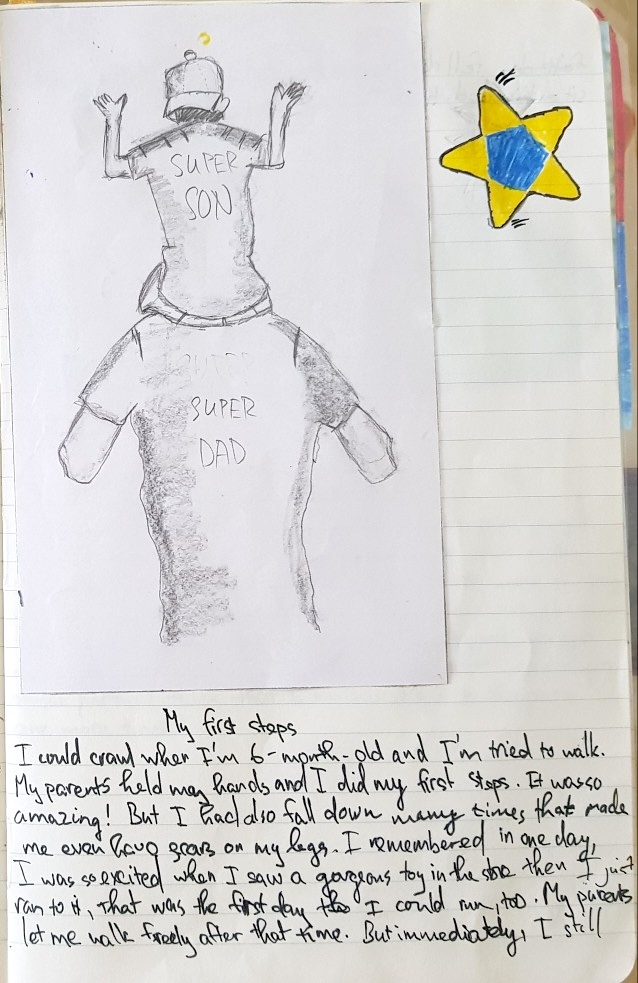 SUPER
SON
SUPER
DAD
My first steps
I could crawl when I'm 6-month-old and I'm tried to walk.
My parents held my hands and I did my first steps. It was so
amazing! But I had also fall down many times that made
me even have scars on my legs. I remembered in one day,
I was so excited when I saw a gorgeous toy in the store then I just
ran to it, that was the first day I could run, too. My parents
let me walk freely after that time. But immediately, I still